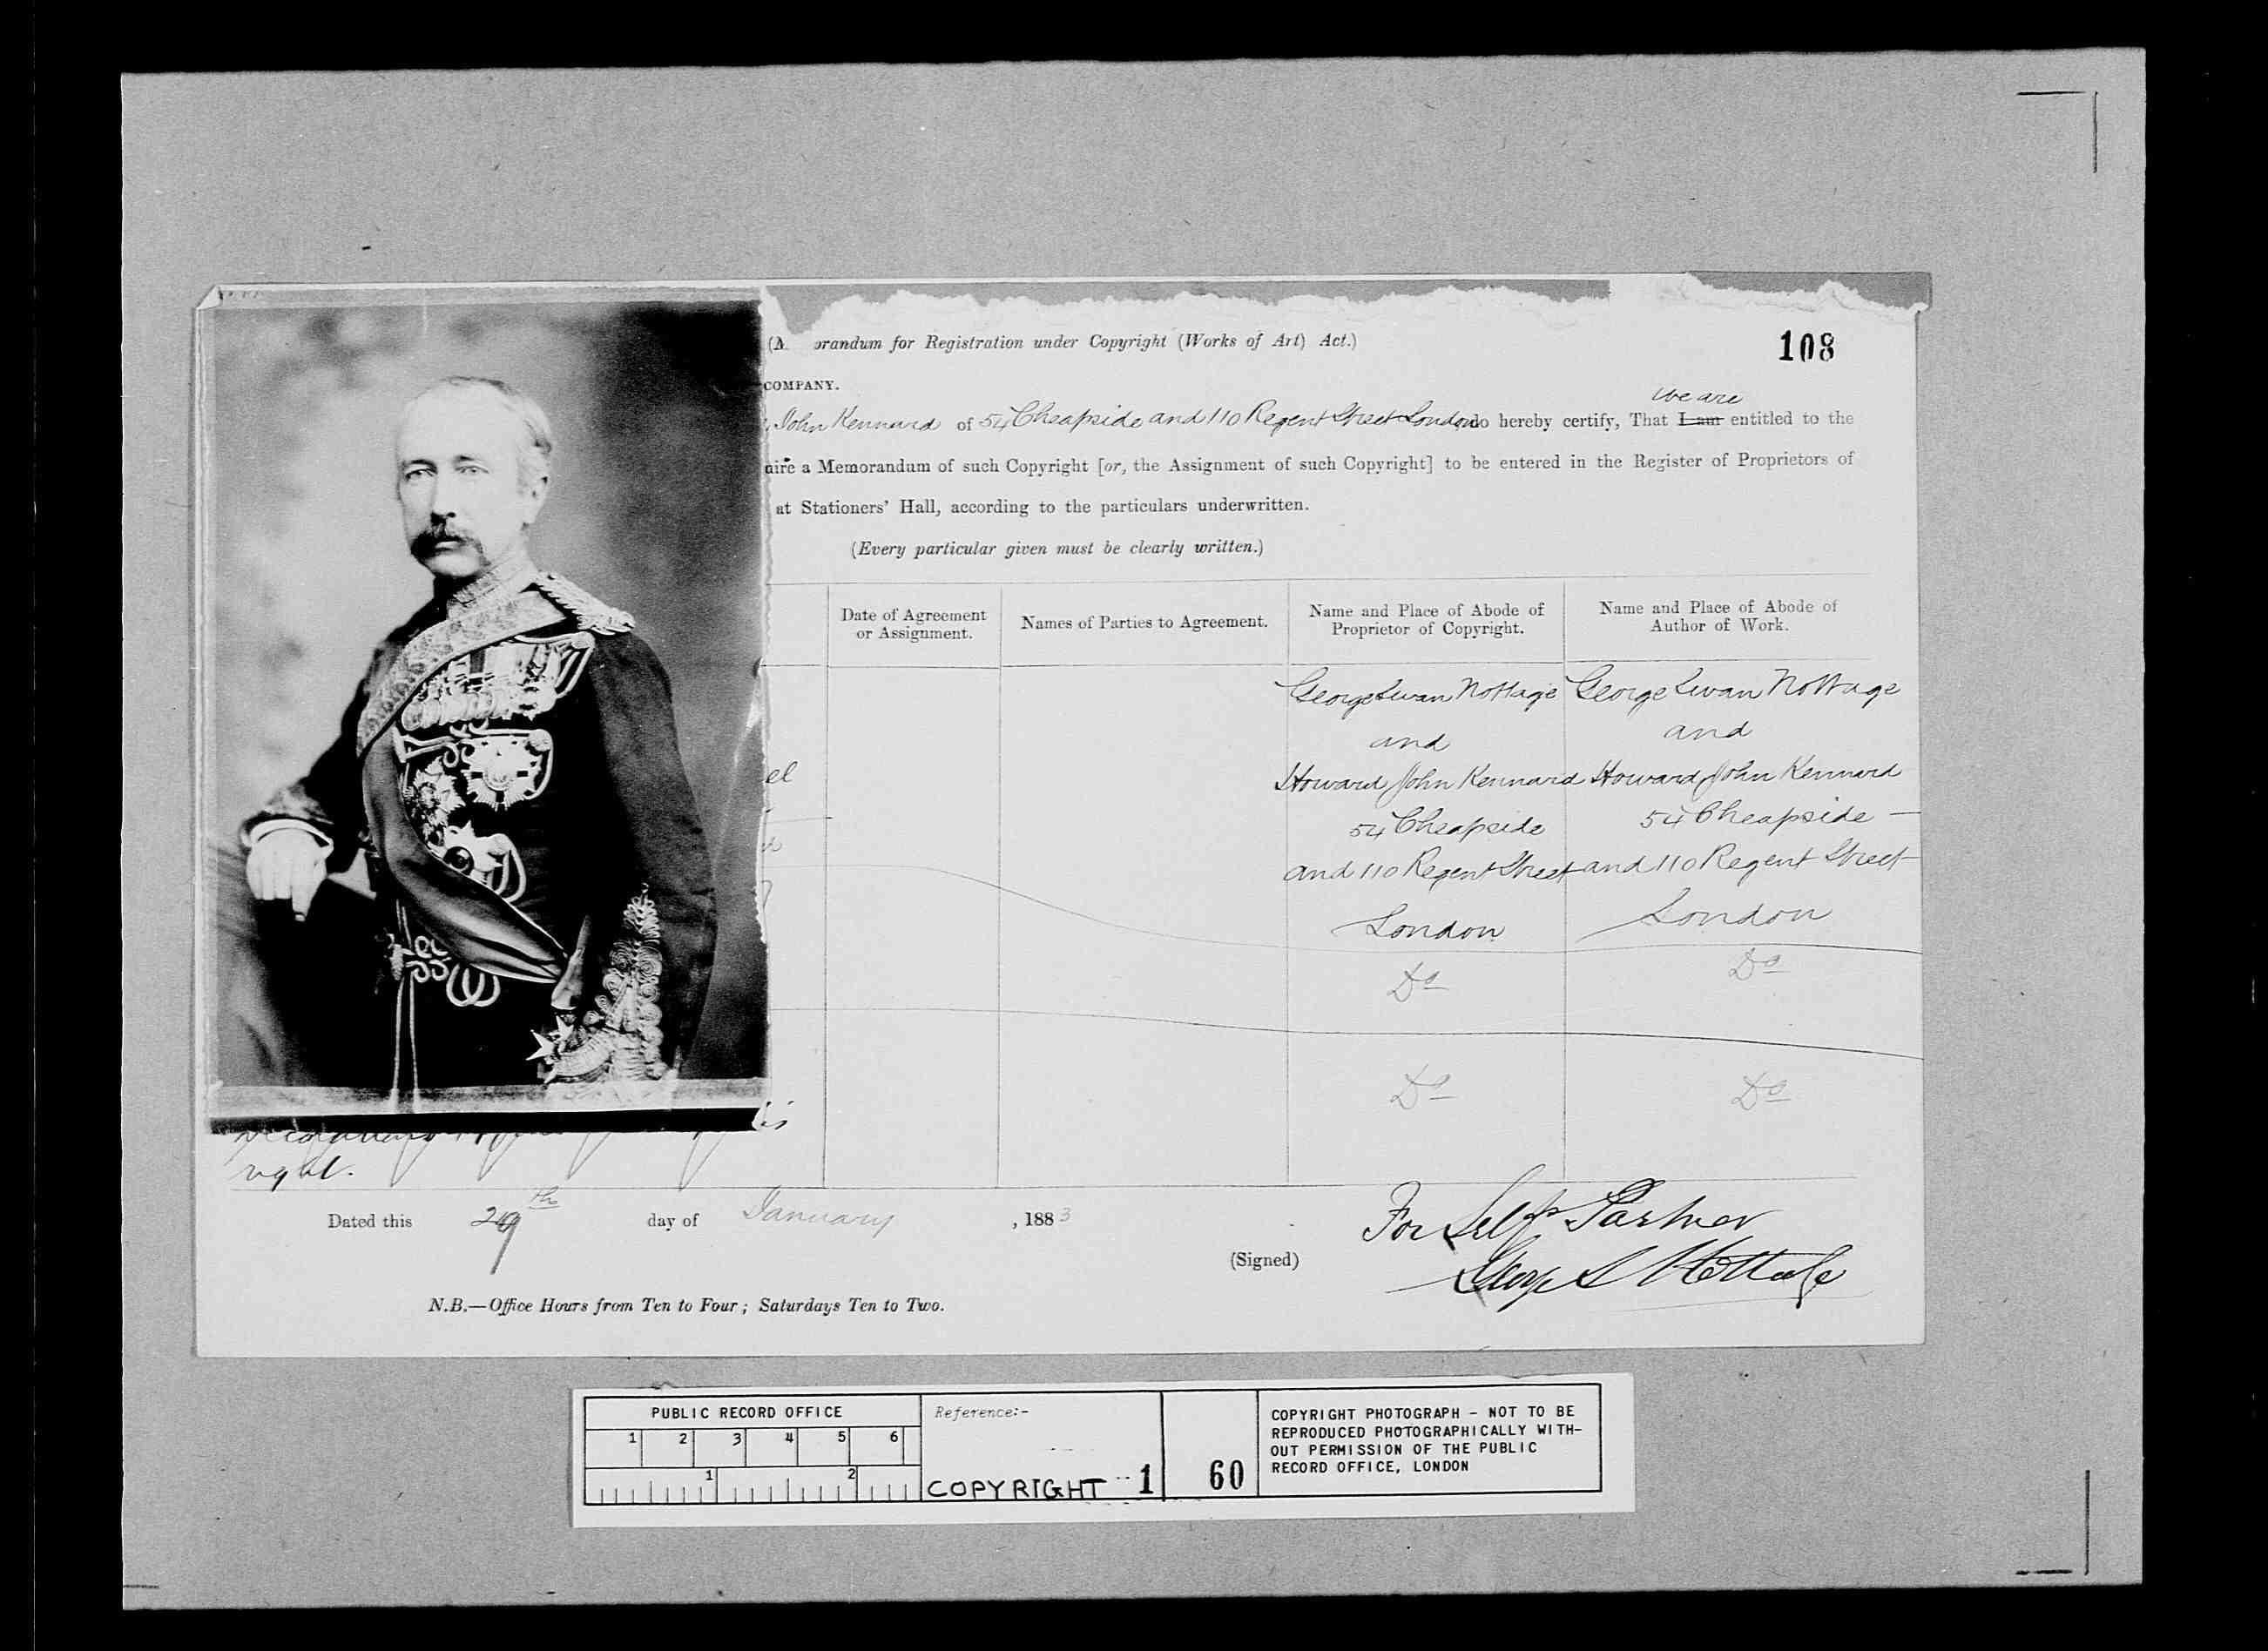 108
orandum for Registration under Copyright (Works of Art) Act.)
COMPANY.
we are
John Kennard of 54 Cheapside and 110 Regent Street London do hereby certify, That I am entitled to the
a Memorandum of such Copyright [or, the Assignment of such Copyright] to be entered in the Register of Proprietors of
at Stationers' Hall, according to the particulars underwritten.
(Every particular given must be clearly written.)
Date of Agreement
or Assignment.
Names of Parties to Agreement.
Name and Place of Abode of
Proprietor of Copyright.
Name and Place of Abode of
Author of Work.
George Swan Nottage
and
Howard John Kennard
54 Cheapside
and 110 Regent Street
London
Do
Do
George Swan Nottage
and
Howard John Kennard
54 Cheapside
and 110 Regent Street
London
Do
Do
el
his
right.
Dated this 29th day of January , 1883
For Self & Partner
(Signed) George S Nottage
N.B.—Office Hours from Ten to Four; Saturdays Ten to Two.
PUBLIC RECORD OFFICE
1 2 3 4 5 6
1 2
Reference:-
COPYRIGHT 1
60
COPYRIGHT PHOTOGRAPH - NOT TO BE
REPRODUCED PHOTOGRAPHICALLY WITH-
OUT PERMISSION OF THE PUBLIC
RECORD OFFICE, LONDON